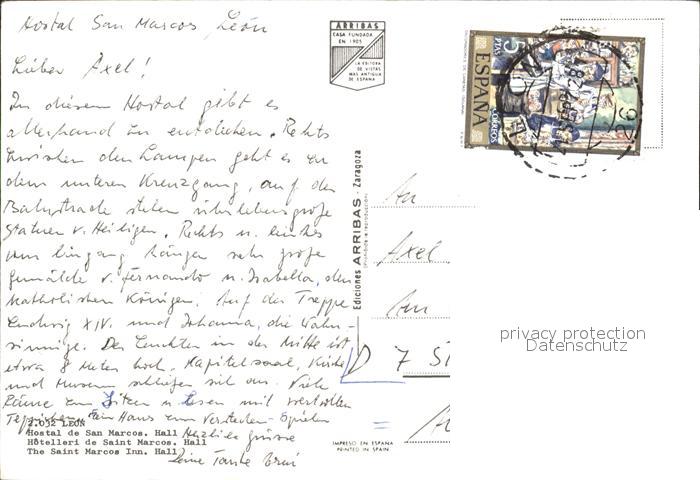 Hostal San Marcos, León
Lieber Axel!
In diesem Hostal gibt es
allerhand zu entdecken. Rechts
zwischen den Lampen geht es zu
dem unteren Kreuzgang, auf der
Balustrade stehen überlebensgroße
Statuen v. Heiligen. Rechts u. links
vom Eingang hängen sehr große
Gemälde v. Fernando u. Isabella, den
katholischen Königen. Auf der Treppe
Ludwig XIV. und Johanna, die Wahn-
sinnige. Der Leuchter in der Mitte ist
etwa 8 Meter hoch. Kapitelsaal, Kirche
und Museum schließen sich an. Viele
Räume zum Sitzen u. Lesen mit wertvollen
Teppichen. Ein Haus zum Verstecken-Spielen
Herzliche Grüsse
Deine Tante
2.032 LEON
Hostal de San Marcos. Hall
Hôtelleri de Saint Marcos. Hall
The Saint Marcos Inn. Hall
ARRIBAS
CASA FUNDADA
EN 1905
LA EDITORA
DE VISTAS
MAS ANTIGUA
DE ESPAÑA
Ediciones ARRIBAS - Zaragoza
IMPRESO EN ESPAÑA
PRINTED IN SPAIN
5 PTAS
ESPAÑA
CORREOS
An
Axel
Am
D 7 St
privacy protection
Datenschutz